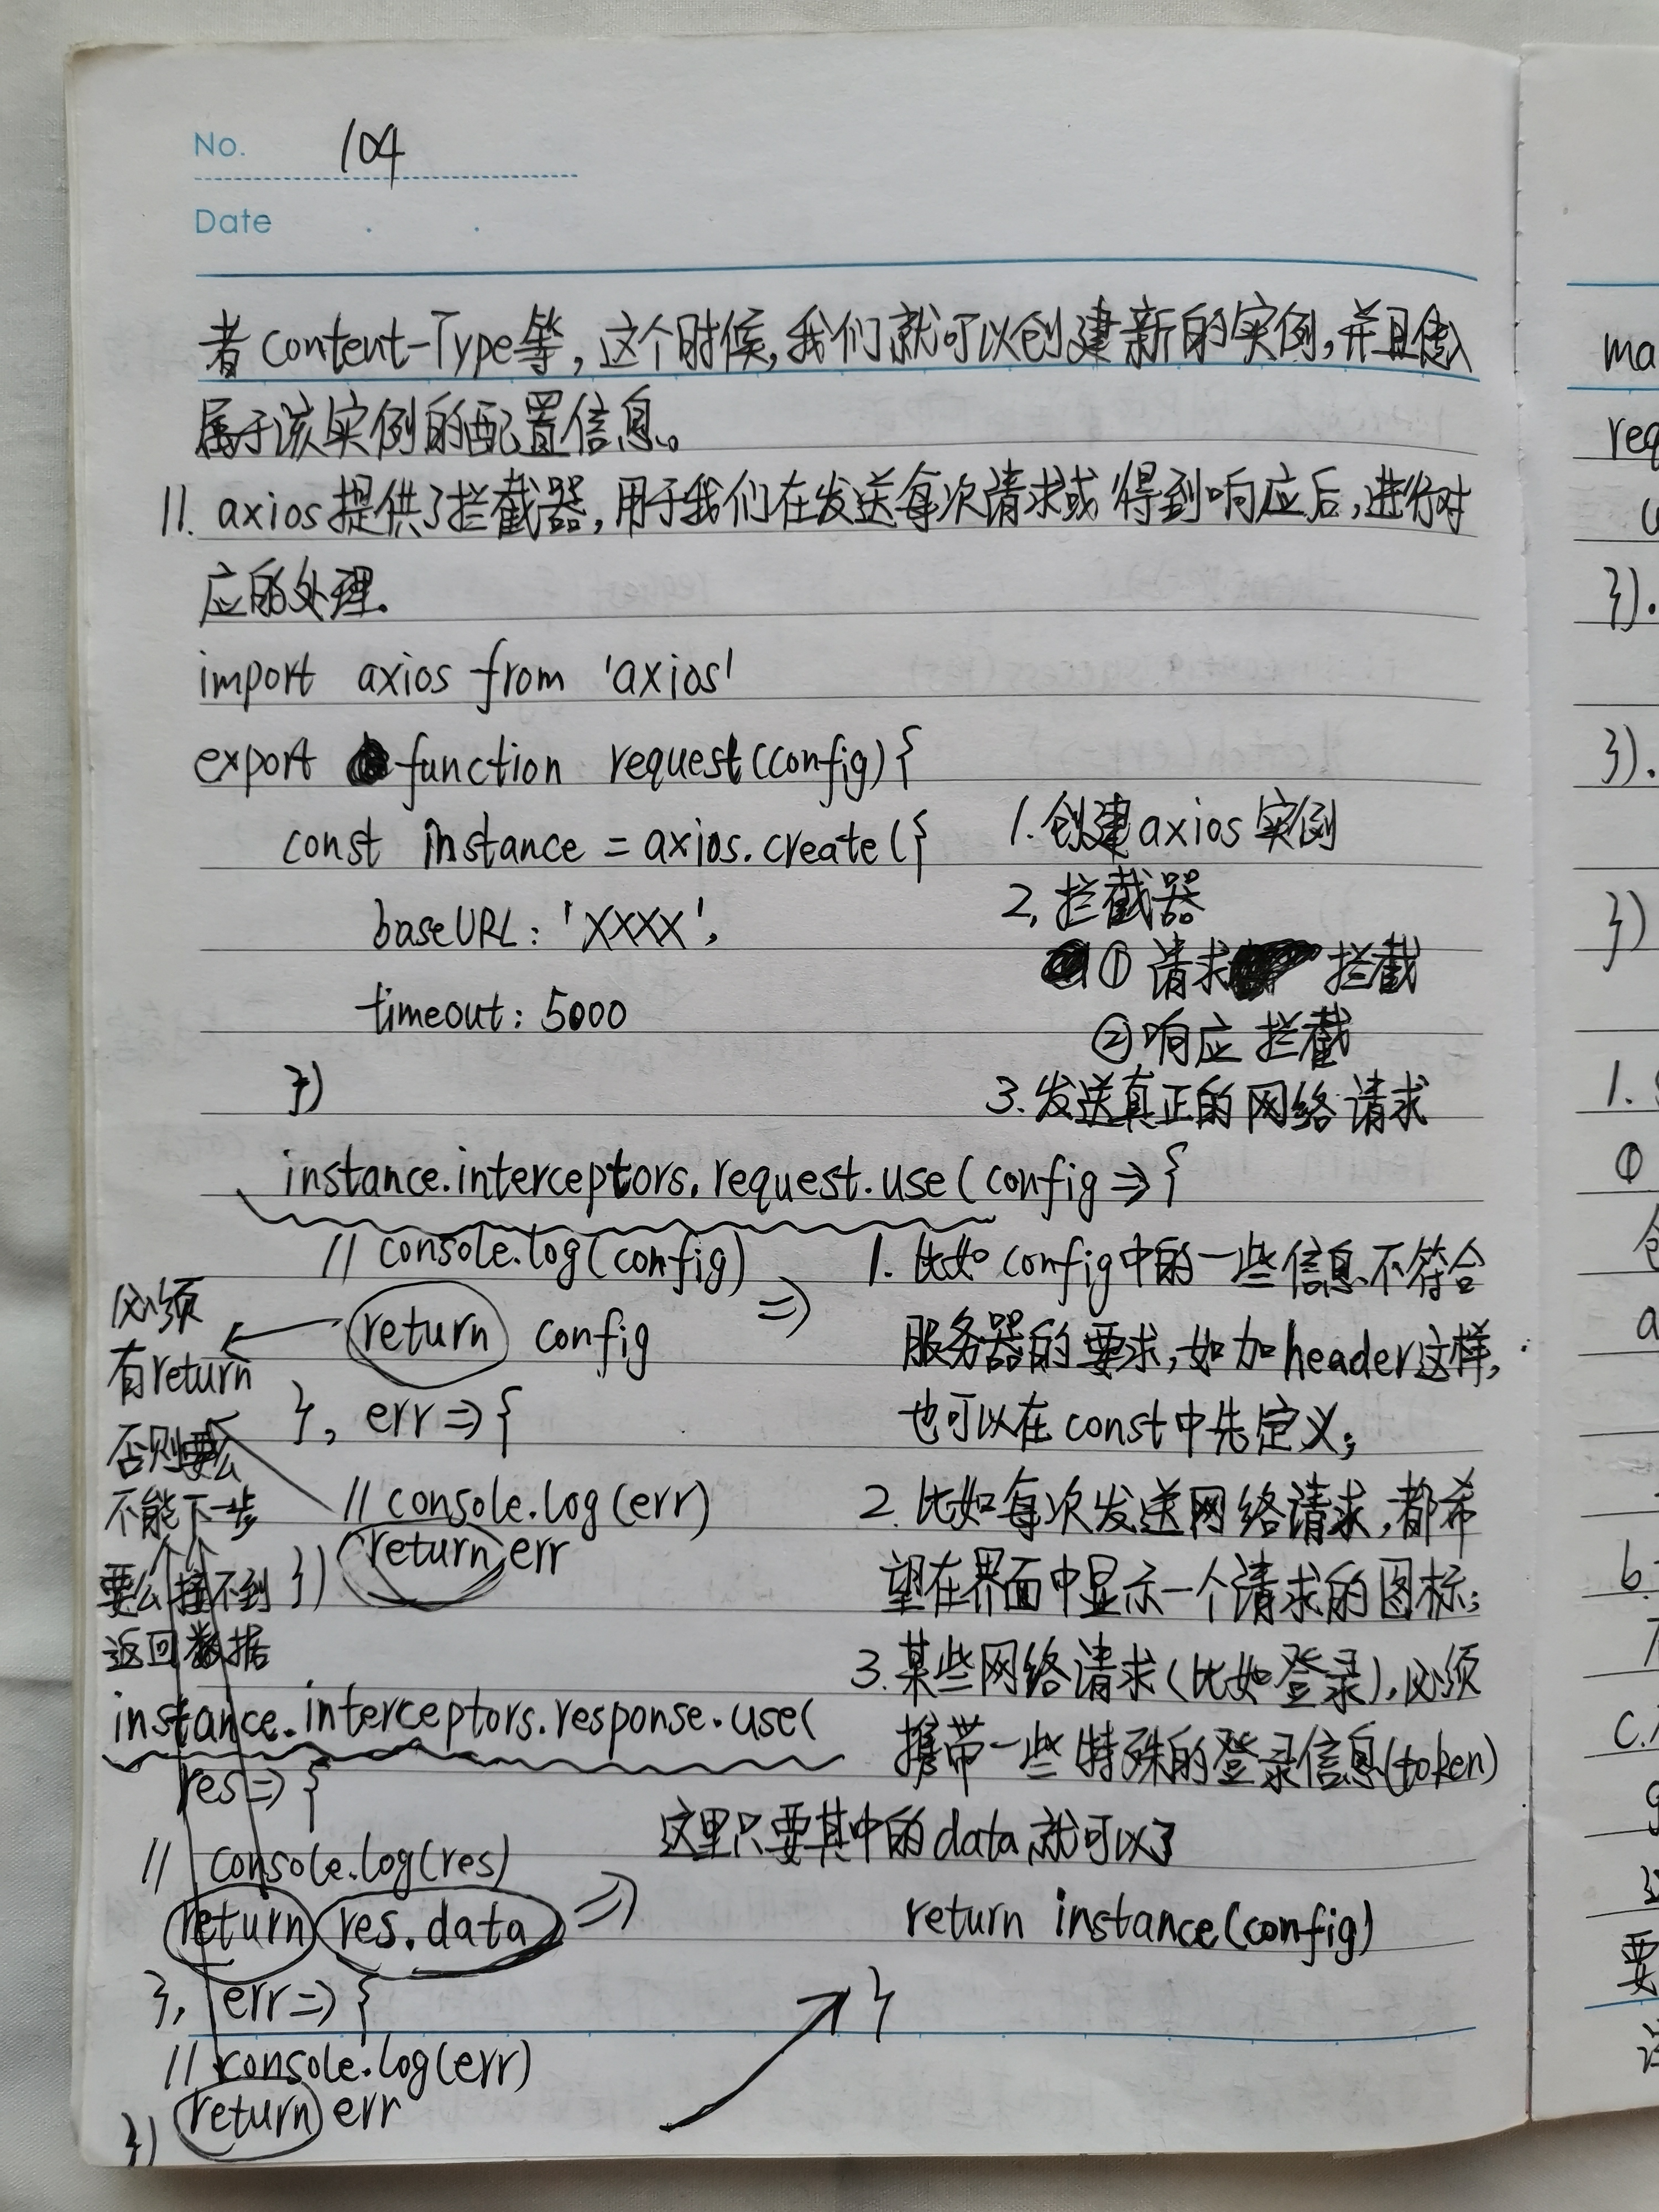 No. 104
Date
者Content-Type等,这个时候,我们就可以创建新的实例,并且传入
属于该实例的配置信息。
11. axios提供了拦截器,用于我们在发送每次请求或得到响应后,进行对
应的处理.
import axios from 'axios'
export function request(config){
const instance = axios.create({
baseURL: 'XXXX',
timeout: 5000
})
1. 创建axios实例
2. 拦截器
① 请求拦截
② 响应拦截
3. 发送真正的网络请求
instance.interceptors.request.use(config => {
// console.log(config)
return config
}, err => {
// console.log(err)
return err
})
必须
有return
否则要么
不能下一步
要么接不到
返回数据
=> 1. 比如config中的一些信息不符合
服务器的要求,如加header这样,
也可以在const中先定义;
2. 比如每次发送网络请求,都希
望在界面中显示一个请求的图标;
3. 某些网络请求(比如登录),必须
携带一些特殊的登录信息(token)
instance.interceptors.response.use(
res => {
// console.log(res)
return res.data =>
这里只要其中的data就可以了
}, err => {
// console.log(err)
return err
})
return instance(config)
}
ma
req
}).
}).
})
1.
①
a
b.
c.
要